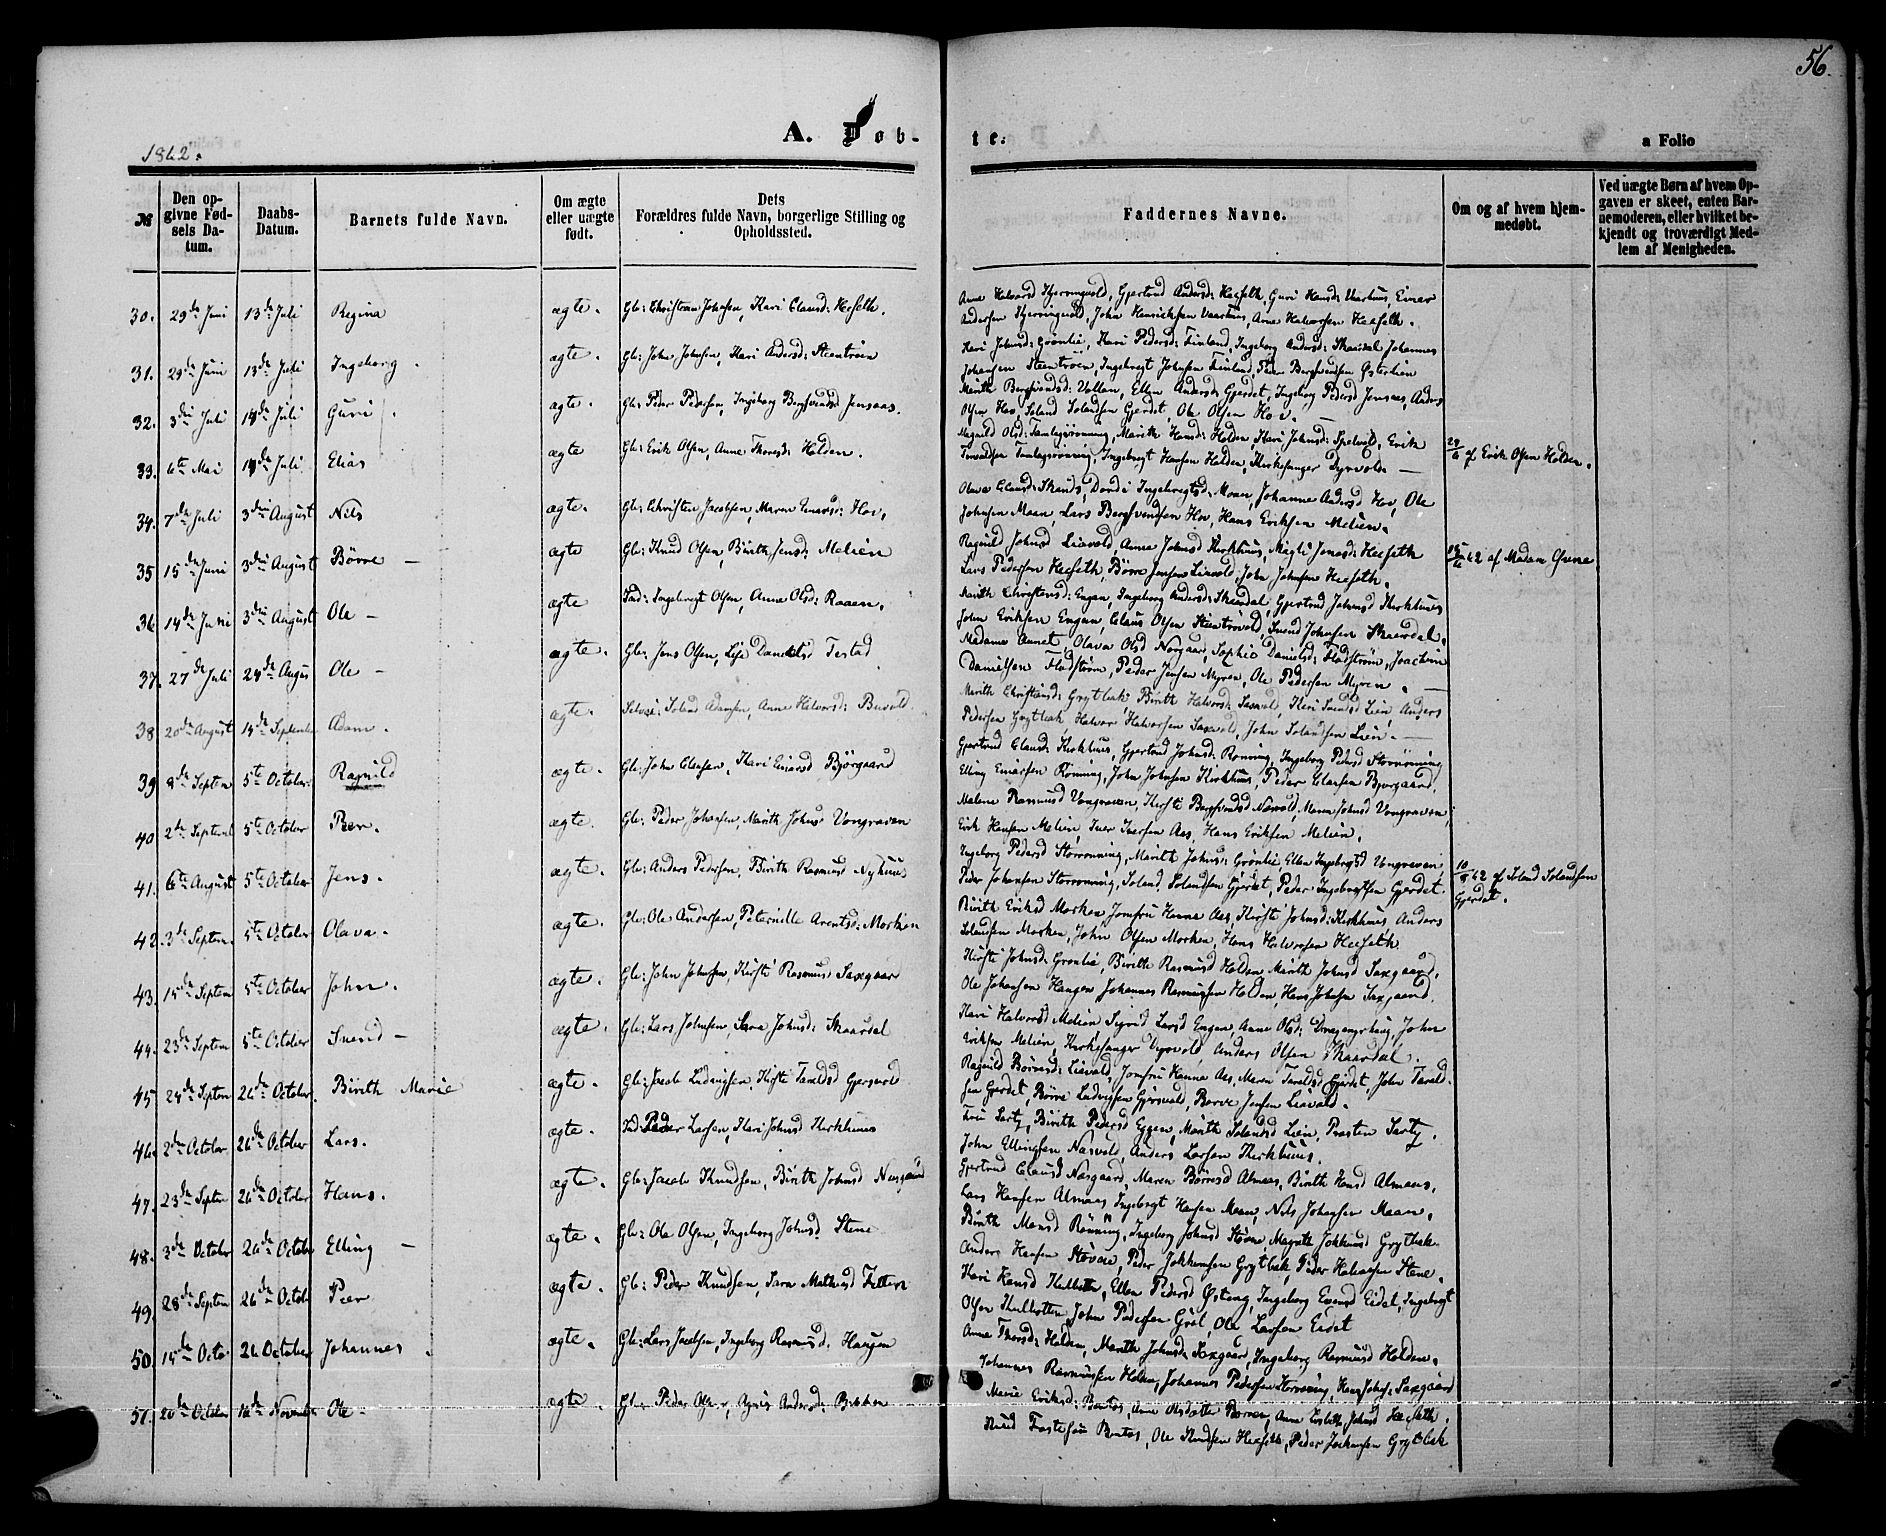 56.
A. Døb-
te.
a Folio
1862.
№
Den opgivne Fødsels Datum.
Daabs-Datum.
Barnets fulde Navn.
Om ægte eller uægte født.
Dets Forældres fulde Navn, borgerlige Stilling og Opholdssted.
Faddernes Navne.
Om og af hvem hjemmedøbt.
Ved uægte Børn af hvem Opgaven er skeet, enten Barnemoderen, eller hvilket bekjendt og troværdigt Medlem af Menigheden.
30. 29de Juni 13de Juli Regina ægte. Gb: Christian Johnsen, Kari Clausd: Hesseth.
Anne Halvorsd Gjerd, Gjertrud Andersd: Hesseth, Guri Hansd: Vaarhuus, Einar
Andersen, John Henricksen Vaarhuus, Arne Halvorsen Hesseth.
31. 29de Juni 13de Juli Ingeborg. ægte. Gb: John Johnsen, Kari Andersd: Steentrøen
Kari Johnsd: Grønlie, Kari Pedersd: Finland, Ingeborg Andersd: Skaardal Johannes
Johansen Steentrøen, Ingebrigt Johnsen Finland, Bersvendsen Østerlien
32. 3die Juli Juli Guri. ægte. Gb: Peder Pedersen, Ingeborg Bersvendsd: Jensaas.
Marith Bersvendsd: Vollan, Ellen Andersd: Gjerdet, Ingeborg Pedersd Jensaas, Anders
Olsen Hov, Eland Elandsen Gjerdet, Ole Olsen Hov.
33. 6te Mai Juli Elias ægte Gb: Erik Olsen, Anne Thoresd: Holden.
Magnild Olsd: Tamlagsrønning, Marith Hansd: Holden, Kari Johnsd: Erik
Tamlagsrønning, Ingebrigt Hansen Holden, Kirkesanger Dyrvold.
af Erik Olsen Holden.
34. 7de Juli 3die August Nils ægte. Gb: Christen Jacobsen, Maren Einarsd: Hov.
Olava Clausd: Dordi Ingebrigtsd: Moan, Johanne Andersd Hov, Ole
Johnsen Maan, Lars Bersvendsen Hov, Hans Eriksen Melien.
35 15de Juni 3die August Børre ægte Gb: Knud Olsen, Birith Jensd: Melien
Ragnild Johnsd Liavold, Anne Johnsd Kirkhuus, Magli Jonasd: Hesseth
Lars Pedersen Hesseth, Børre Jensen Liavold, John Johnsen Hesseth.
af Madam Grene
36 14de Juni 3die August Ole ægte Ind: Ingebrigt Olsen, Anne Olsd: Raaen.
Marith Christensd: Engan, Ingeborg Andersd: Skaardal, Gjertrud Johnsd Kirkhuus
John Eriksen Engan, Claus Olsen Steentrøvold, Svend Johnsen Skaardal.
37. 27de Juli 24de Augus Ole ægte. Gb: Jens Olsen, Lise Danielsd Testad
Madame Annet, Olava Olsd Norgaar, Sophie Danielsd: Flodstrøm, Joachim
Danielsen Flodstrøm, Peder Jensen Myren, Ole Pedersen Myren.
38 20de August 14de September Adam. ægte. Selvei: Eland Adamsen, Anne Halvorsd: Buvold.
Marith Christiansd: Grytbak, Birith Halvorsd: Saxvold, Kari Lien, Anders
Pedersen Grytbak, Halvor Halvorsen Saxvold, John Elandsen Lien.
39 8de Septem 5te October. Ragnild ægte. Gb: John Clausen, Kari Einarsd Bjørgaard
Gjertrud Clausd: Kirkhuus, Gjertrud Johnsd: Rønning, Ingeborg Pedersd Storrønning
Elling Einarsen Rønning, John Johnsen Kirkhuus, Peder Clausen Bjørgaard.
40 2de Septemb 5te October Peer. ægte. Gb: Peder Johansen, Marith Johnsd Vongraven
Malene Rasmusd Vongraven, Kirsti Bersvendsd Næsvold, Maren Johnsd Vongraven,
Erik Hansen Melien, Iver Iversen Aas, Hans Eriksen Melien.
41. 6te August 5te October Jens. ægte. Gb: Anders Pedersen, Birith Rasmusd Nyhuus
Ingeborg Pedersd Storrønning, Marith Johnsd: Grønlie Ellen Ingebrigtsd Vongraven,
Peder Johansen Storrønning, Eland Elandsen Gjerdet, Peder Ingebrigtsen Gjerdet.
af Eland Elandsen
Gjerdet.
42. 3de Septem. 5te October Olava. ægte. Gb: Ole Andersen, Peternille Arentsd: Morken
Birith Eriksd Morken Jomfru Hanna Aas, Kirsti Johnsd: Kirkhuus Anders
Elandsen Morken, John Olsen Morken, Hans Halvorsen Hesseth.
43. 15de Septem 5te October John. ægte. Gb: John Johnsen, Kirsti Rasmusd Saxgaar
Kirsti Johnsd: Grønlie, Birith Rasmusd Holden Marith Johnsd Saxgaard,
Ole Johansen Haugen, Johannes Rasmussen Holden, Hans Johnsen Saxgaard.
44. 23de Septem 5te October Svend ægte. Gb: Lars Johnsen, Sara Johnsd: Skaardal
Kari Halvorsd Melien Sigrid Larsd Engan, Anne Olsd: John
Eriksen Melien, Kirkesanger Dyrvold, Anders Olsen Skaardal.
45 24de Septem 26de October. Birith Marie ægte. Gb: Jacob Ludvigsen, Kirsti Taraldsd Gjersvold
Ragnild Børresd: Liavold, Jomfru Hanna Aas, Maren Taraldsd Gjerdet, John Tarald-
sen Gjerdet, Børre Ludvigsen Gjersvold, Børre Jensen Liavold.
46. 2de October 26de October Lars. ægte. Ind Peder Larsen, Kari Johnsd Kirkhuus
Fru Sartz, Birith Pedersd Eggen, Marith Elandsd Lien, Presten Sartz.
John Ellingsen Næsvold, Anders Larsen Kirkhuus.
47. 23de Septem 26de October Hans. ægte. Gb: Jacob Knudsen, Birith Johnsd Norgaard
Gjertrud Clausd Norgaard, Maren Børresd Almaas, Birith Hansd Almaas,
Lars Hansen Almaas Ingebrigt Hansen Maan, Nils Johnsen Maan.
48. 3de October 26de Octob Elling ægte. Gb: Ole Olsen, Ingeborg Johnsd: Stene
Birith Monsd Rønning, Ingeborg Johnsd Støvne Magrete Johnsd Grytbak
Anders Hansen Støvne, Peder Grytbak, Peder Halvorsen Stene.
49. 28de Septem 26de Octob Peer ægte. Gb: Peder Knudsen, Sara Mathisd
Kari Hansd Kulbotten, Ellen Pedersd Østeng, Ingeborg Evensd Eidet, Ingebrigt
Olsen Kulbotten, John Pedersen Grøt, Ole Larsen Eidet
50. 15de Octo 26 October Johannes ægte. Gb: Lars Jacobsen, Ingeborg Rasmusd. Haugen
Anne Thoresd: Holden, Marith Johnsd: Saxgaard, Ingeborg Rasmusd Holden.
Johannes Rasmussen Holden, Johannes Pedersen Storrønning, Hans Johns: Saxgaard
51. 20de October 16de November Ole ægte. Gb: Peder Olsen, Agnis Andersd: Bakken
Marie Eriksd: Anne Olsdatter Anne Johnsd Hesseth.
Knud Ole Knudsen Hesseth, Peder Jochumsen Grytbak